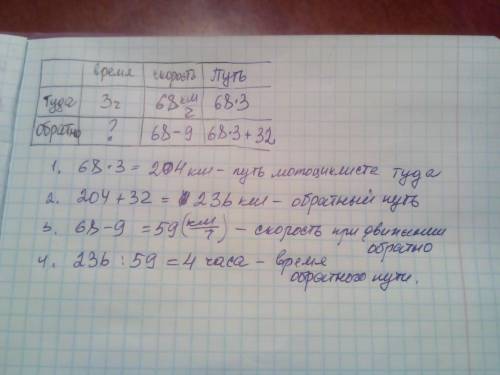 время скорость Путь
туда 3ч 68 км/ч 68·3
обратно ? 68-9 68·3+32
1. 68·3 = 204 км - путь мотоциклиста туда
2. 204+32 = 236 км - обратный путь
3. 68-9 = 59 (км/ч) - скорость при движении
обратно
4. 236 : 59 = 4 часа - время
обратного пути.